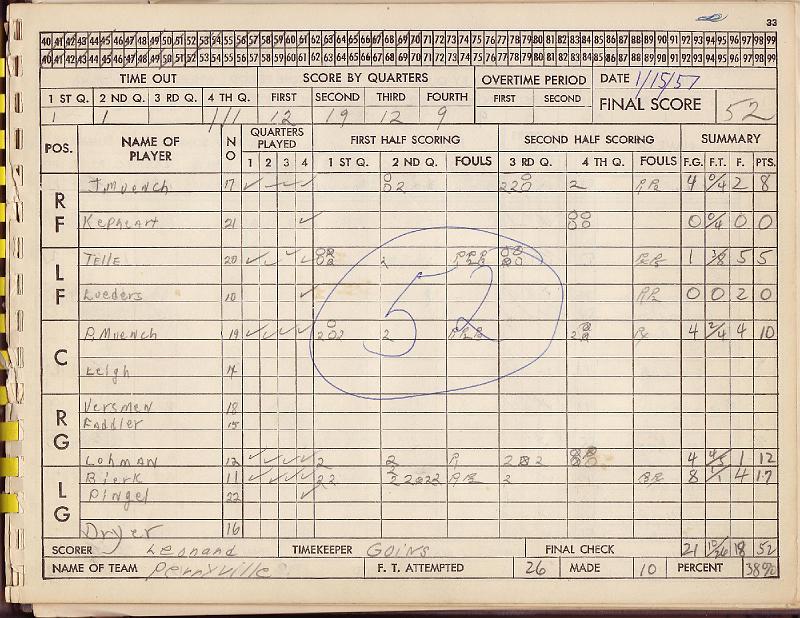 33
40 41 42 43 44 45 46 47 48 49 50 51 52 53 54 55 56 57 58 59 60 61 62 63 64 65 66 67 68 69 70 71 72 73 74 75 76 77 78 79 80 81 82 83 84 85 86 87 88 89 90 91 92 93 94 95 96 97 98 99
40 41 42 43 44 45 46 47 48 49 50 51 52 53 54 55 56 57 58 59 60 61 62 63 64 65 66 67 68 69 70 71 72 73 74 75 76 77 78 79 80 81 82 83 84 85 86 87 88 89 90 91 92 93 94 95 96 97 98 99
TIME OUT SCORE BY QUARTERS OVERTIME PERIOD DATE 1/15/57
1 ST Q. 2 ND Q. 3 RD Q. 4 TH Q. FIRST SECOND THIRD FOURTH FIRST SECOND FINAL SCORE 52
1 1 111 12 19 12 9
POS. NAME OF PLAYER NO QUARTERS PLAYED FIRST HALF SCORING SECOND HALF SCORING SUMMARY
1 2 3 4 1 ST Q. 2 ND Q. FOULS 3 RD Q. 4 TH Q. FOULS F.G. F.T. F. PTS.
RF J. Muench 17 ✓ 2 220 2 4 0/4 2 8
Kephart 21 ✓ 0 0/4 0 0
LF Telle 20 ✓ ✓ ✓ ✓ 2 1 3/8 5 5
Lueders 10 ✓ 0 0 2 0
C P. Muench 19 ✓ ✓ ✓ ✓ 202 2 4 2/4 4 10
Leigh
RG Versmen 18
Faddler 15
Lohman 12 ✓ ✓ ✓ ✓ 2 2 4 4/5 1 12
LG Bierk 11 ✓ ✓ ✓ ✓ 22 2 8 1/1 4 17
Pingel 22 ✓
Dryer 16
52
SCORER Leonard TIMEKEEPER Goins FINAL CHECK 21 10/26 18 52
NAME OF TEAM Perryville F. T. ATTEMPTED 26 MADE 10 PERCENT 38%